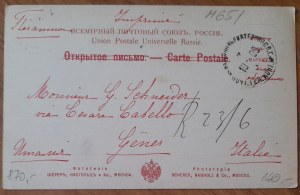 Печатное Imprimé 4651
ВСЕМІРНЫЙ ПОЧТОВЫЙ СОЮЗЪ. РОССІЯ.
Union Postale Universelle Russie.
Открытое письмо. — Carte Postale
Monsieur G. Schneider
via Cesare Cabella
R 23/6
Gênes
Италия Italie
870,- 140,-
Фототипія Phototypie
ШЕРЕРЪ, НАБГОЛЬЦЪ и Ко., МОСКВА. SCHERER, NABHOLZ & Co., MOSCOU.